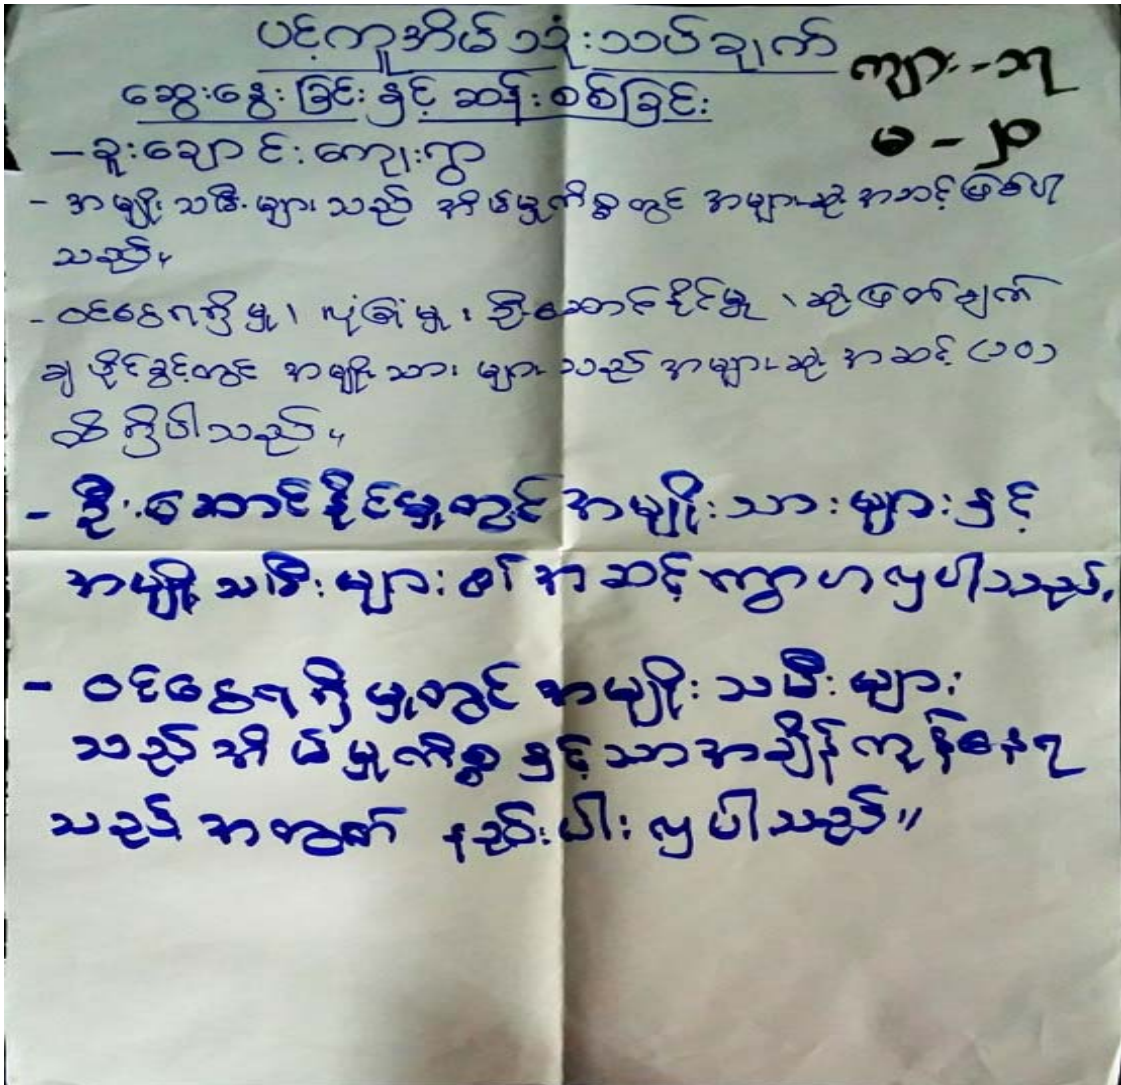 ပင့်ကူအိမ်သုံးသပ်ချက်
ကျား-၁၅
ဆွေးနွေးခြင်းနှင့် ဆန်းစစ်ခြင်း
မ - ၂၃
- ခူးချောင်းကျေးရွာ
- အမျိုးသမီးများသည် အိမ်မှုကိစ္စတွင် အများဆုံးအဆင့်ဖြစ်ပါ
သည်။
- ဝင်ငွေရရှိမှု၊ လုံခြုံမှု၊ ဦးဆောင်နိုင်မှု၊ ဆုံးဖြတ်ချက်
ချနိုင်ခွင့်တွင် အမျိုးသားများသည် အများဆုံးအဆင့် (၁၀)
ထိရှိပါသည်။
- ဦးဆောင်နိုင်မှုတွင် အမျိုးသားများနှင့်
အမျိုးသမီးများ၏ အဆင့်ကွာဟလှပါသည်။
- ဝင်ငွေရရှိမှုတွင် အမျိုးသမီးများ
သည် အိမ်မှုကိစ္စနှင့်သာအချိန်ကုန်နေရ
သည့်အတွက် နည်းပါးလှပါသည်။